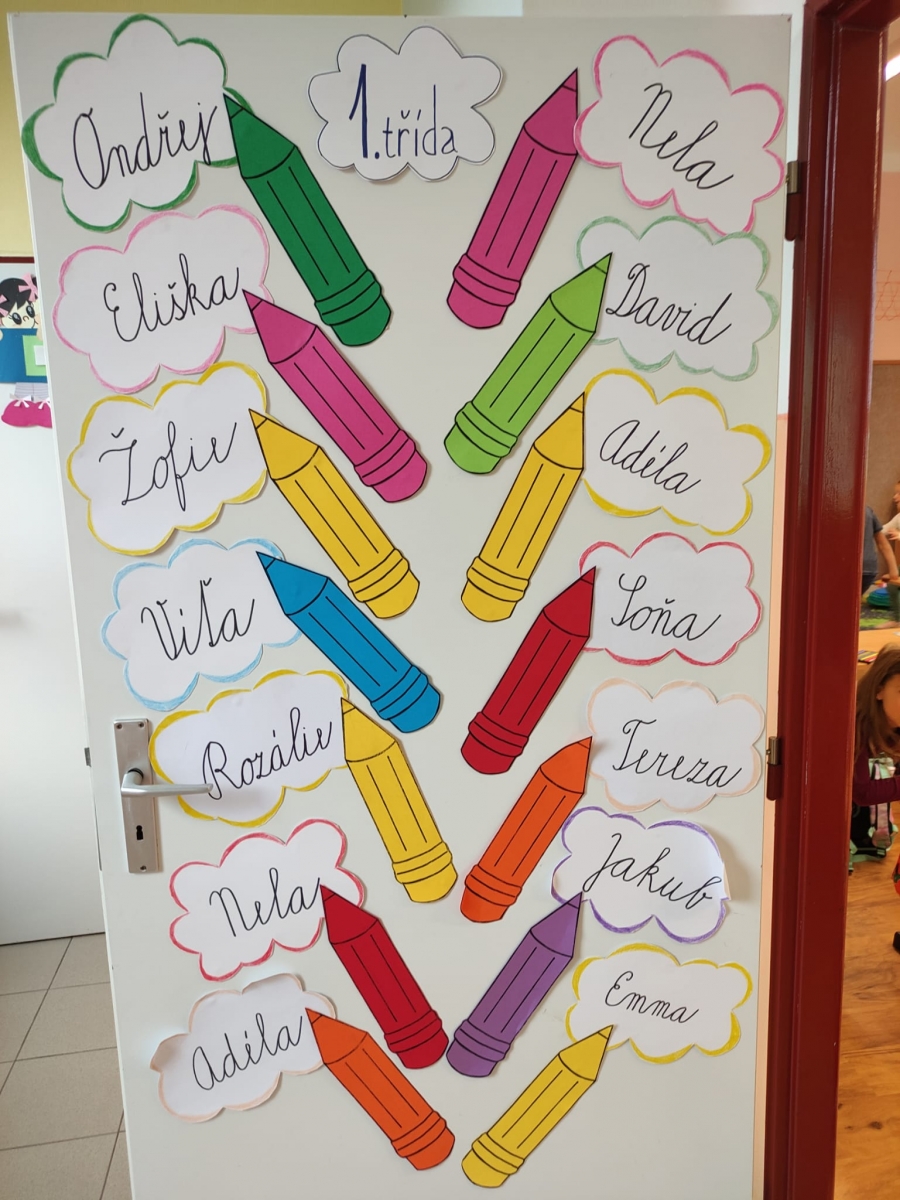 1. třída
Ondřej
Eliška
Žofie
Víťa
Rozálie
Nela
Adéla
Nela
David
Adéla
Soňa
Tereza
Jakub
Emma